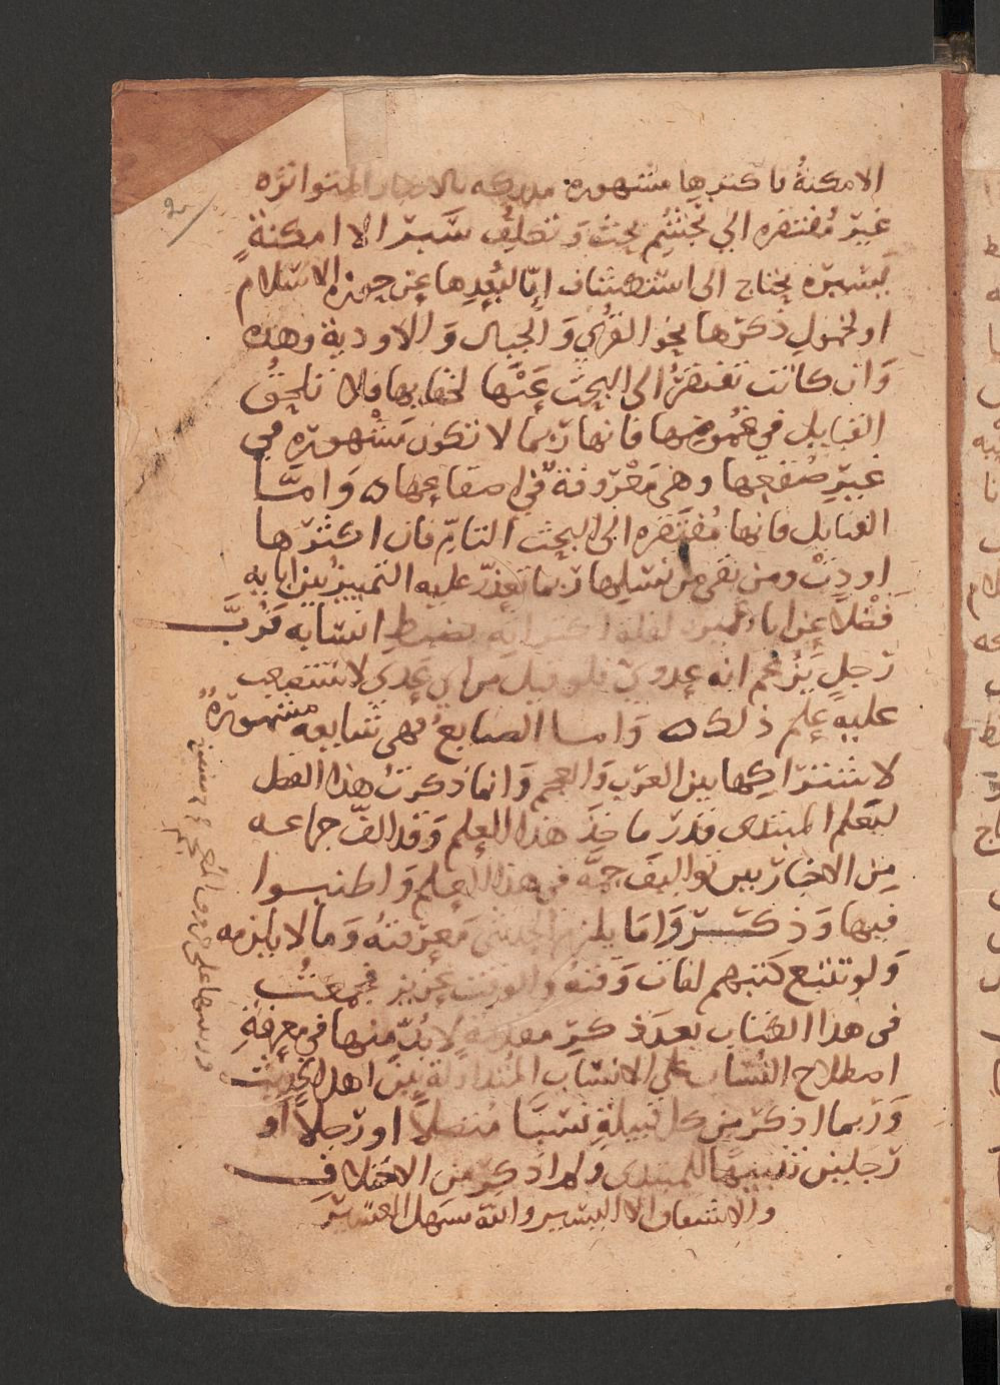 الامكنةُ فاكثرها مشهوره مدركه بالاخبار المتواتره
غيرُ مُفتقره الي تجشُّم بحث وَتكليف سَبر الا امكنةٍ
يَسيرة يحتاج الى استكشاف إمّا لبُعدِها عن حوزه الاسلام
او لخمولِ ذكرها نحو القرُي وَالجبال وَالاودية وهذه
وَان كانت تفتقرُ الى البحث عَنْها لخفايها فلا تلحقُ
القبايل في غُموضِها فانها ربما لا تكون مَشْهوره في
غيرِ صُقعِها وهي مَعْرُوفة في اصقاعها ه وَامَّا
القبايل فانها مُفتَقره الى البحث التامّ فان اكثرها
اودتْ ومن بقى من نسلِها ربما تعذر عليه التمييز بين ابايه
فضْلًا عن ابا الغير لقلة اكتراثه بضبطِ انسابه فرُبَّ
رَجلٍ يَزْعم انه عدويّ فلو قيل من اي عَدي لاستَعجم
عليهِ عِلم ذلك ه وَاما الصنايعُ فهى شايعه مشهورةٌ
لاشتراكِها بين العَرب وَالعجم وَانما ذكرتُ هذا الفصل
ليَعلم المبتدى قدر ماخذ هذا العلم وَقد الفّ جماعه
من الاخباريين تواليفَ جمَّه في هذا العلم وَاطنبوا
فيها وَذكـــروا ما يلزم الحديثى مَعرفتهُ وَما لا يلزمه
وَلو تتبع كتبهم لفات وَقتهُ والوقت عَزيز فجمعتُ
في هذا الكتاب بعدَ ذكرِ مقدمةٍ لابُدّ منها في معرفةِ
اصطلاح النُسّاب علي الانسَاب المُتداولة بين اهل الحديث
وَربما اذكر من كل قبيلةٍ نسبًا مُتصلاً او رَجلاً او
رَجلين تنبيهًا للمبتدى ولم اذكر من الاختلاف
والاشتقاق الا اليسير والله يسهل العَسيرَ